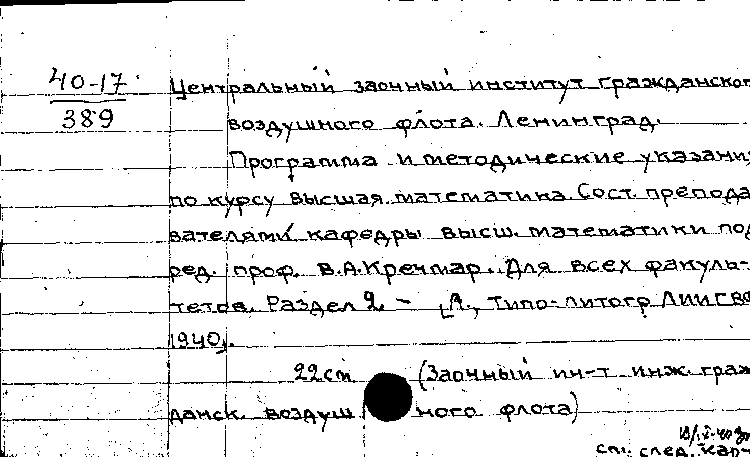 40-17
389
Центральный заочный институт гражданског
воздушного флота. Ленинград.
Программа и методические указани
по курсу высшая математика. Сост. препода
вателями кафедры высш. математики под
ред. проф. В.А.Кречмар. Для всех факуль-
тетов. Раздел 2 – [Л., Типо-литогр ЛИИГВФ
1940].
22 см (Заочный ин-т инж. граж
данск. воздуш ного флота)
см. след. кар